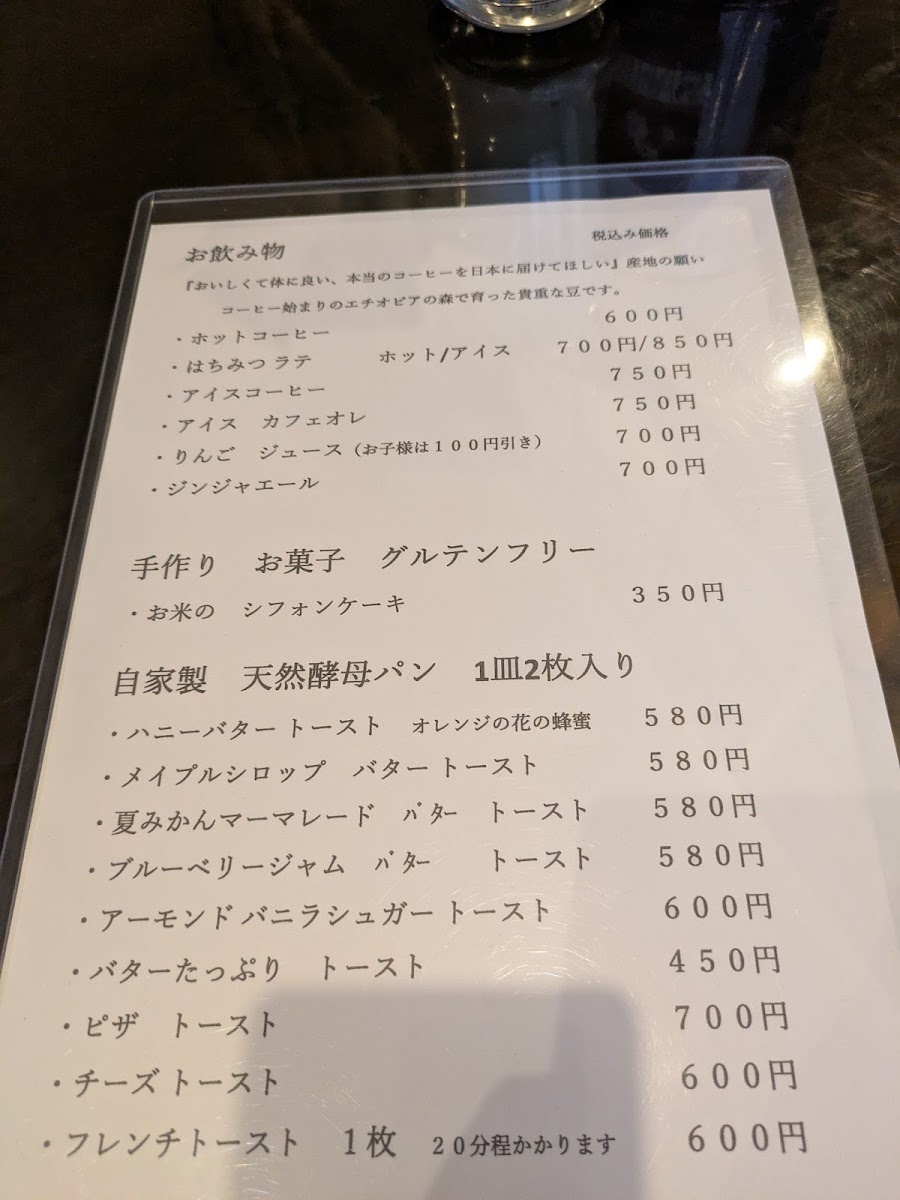 お飲み物　税込み価格
『おいしくて体に良い、本当のコーヒーを日本に届けてほしい』産地の願い
コーヒー始まりのエチオピアの森で育った貴重な豆です。
・ホットコーヒー　６００円
・はちみつ ラテ　ホット/アイス　７００円/８５０円
・アイスコーヒー　７５０円
・アイス　カフェオレ　７５０円
・りんご　ジュース（お子様は１００円引き）　７００円
・ジンジャエール　７００円
手作り　お菓子　グルテンフリー
・お米の　シフォンケーキ　３５０円
自家製　天然酵母パン　1皿2枚入り
・ハニーバター トースト　オレンジの花の蜂蜜　５８０円
・メイプルシロップ　バター トースト　５８０円
・夏みかんマーマレード　ﾊﾞﾀｰ　トースト　５８０円
・ブルーベリージャム　ﾊﾞﾀｰ　トースト　５８０円
・アーモンド バニラシュガー トースト　６００円
・バターたっぷり　トースト　４５０円
・ピザ　トースト　７００円
・チーズ トースト　６００円
・フレンチトースト　１枚　２０分程かかります　６００円